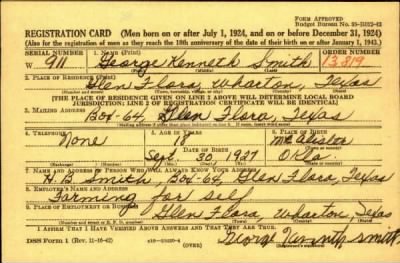 FORM APPROVED
Budget Bureau No. 33-R102-42
REGISTRATION CARD (Men born on or after July 1, 1924, and on or before December 31, 1924)
(Also for the registration of men as they reach the 18th anniversary of the date of their birth on or after January 1, 1943.)
SERIAL NUMBER 1. NAME (Print) ORDER NUMBER
W 911 George Kenneth Smith 13,819
(First) (Middle) (Last)
2. PLACE OF RESIDENCE (Print)
Glen Flora, Wharton, Texas
[THE PLACE OF RESIDENCE GIVEN ON LINE 2 ABOVE WILL DETERMINE LOCAL BOARD
JURISDICTION; LINE 2 OF REGISTRATION CERTIFICATE WILL BE IDENTICAL]
3. MAILING ADDRESS
Box-64, Glen Flora, Texas
4. TELEPHONE 5. AGE IN YEARS 6. PLACE OF BIRTH
None 18 McAlister
DATE OF BIRTH
Sept. 30 1927 Okla
7. NAME AND ADDRESS OF PERSON WHO WILL ALWAYS KNOW YOUR ADDRESS
H. B. Smith, Box-64, Glen Flora, Texas
8. EMPLOYER'S NAME AND ADDRESS
Farming for self
9. PLACE OF EMPLOYMENT OR BUSINESS
Glen Flora, Wharton, Texas
I AFFIRM THAT I HAVE VERIFIED ABOVE ANSWERS AND THAT THEY ARE TRUE.
DSS Form 1 (Rev. 11-16-42) (OVER) George Kenneth Smith